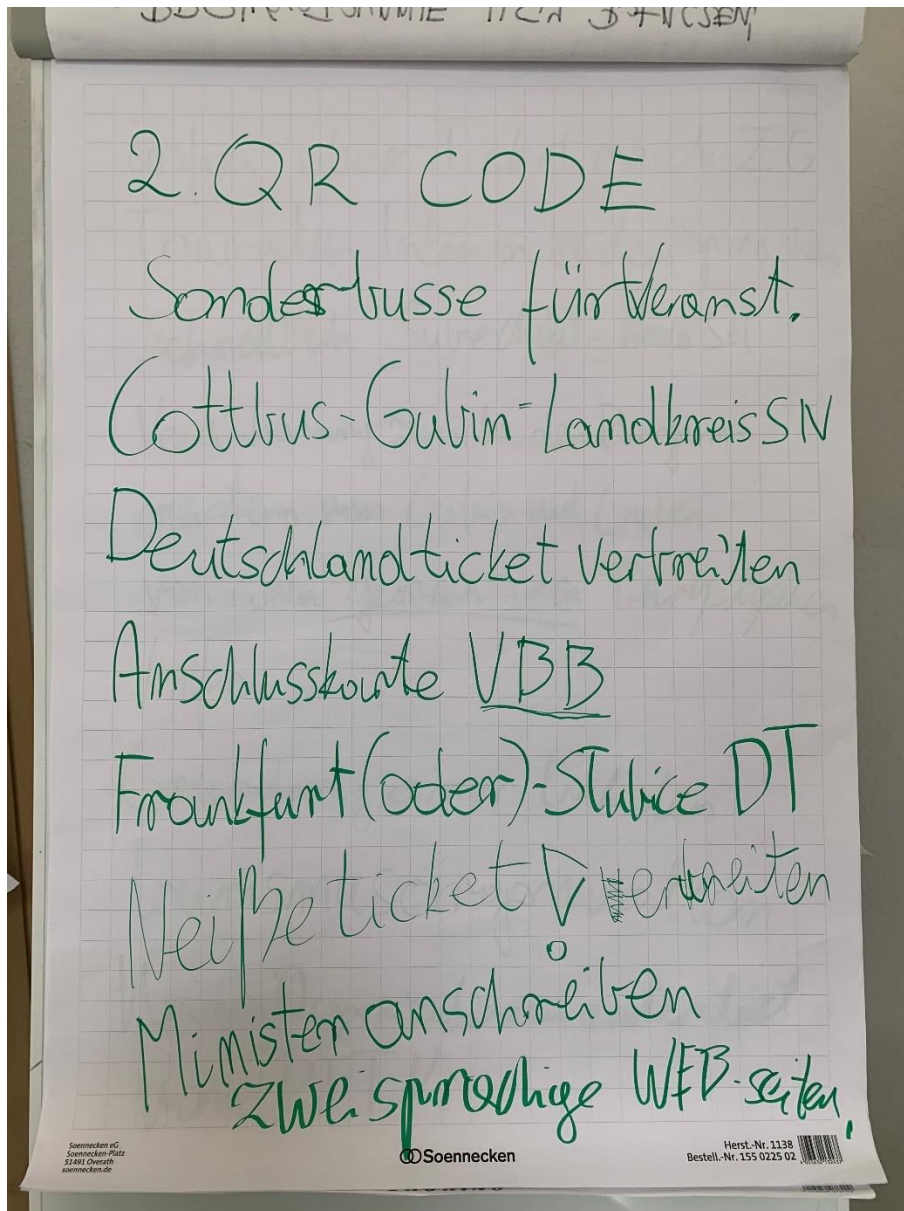 2. QR CODE
Sonderbusse für Veranst.
Cottbus-Gubin-Landkreis SN
Deutschlandticket verbreiten
Anschlusskarte VBB
Frankfurt (oder)-Slubice DT
Neißeticket! verbreiten
Minister anschreiben
zweisprachige WEB-seiten,
Soennecken eG
Soennecken-Platz
51491 Overath
soennecken.de
Soennecken
Herst.-Nr. 1138
Bestell.-Nr. 155 0225 02